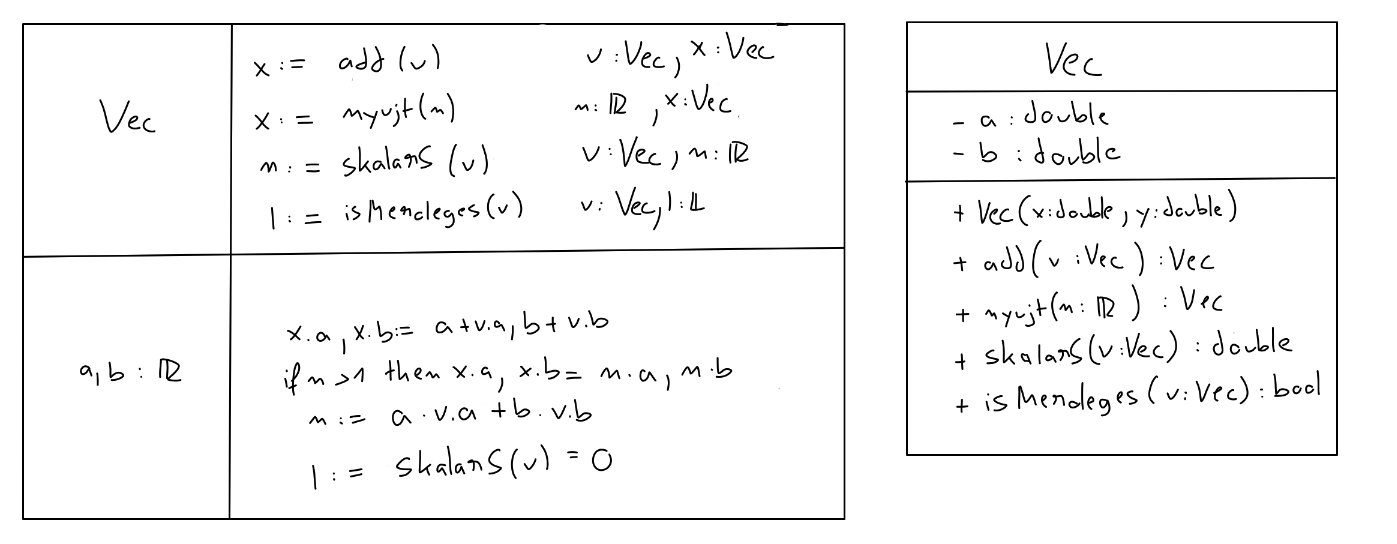 Vec
x := add (v) v : Vec, x : Vec
x := nyujt(n) n : ℝ, x : Vec
n := skalarS (v) v : Vec, n : ℝ
l := isMeroleges(v) v : Vec, l : 𝕃
a, b : ℝ
x.a, x.b := a+v.a, b+v.b
if n >1 then x.a, x.b = n·a, n·b
n := a · v.a + b · v.b
l := skalarS(v) = 0
Vec
- a : double
- b : double
+ Vec(x:double, y:double)
+ add(v : Vec) : Vec
+ nyujt(n : ℝ) : Vec
+ skalarS(v:Vec) : double
+ isMeroleges(v: Vec) : bool